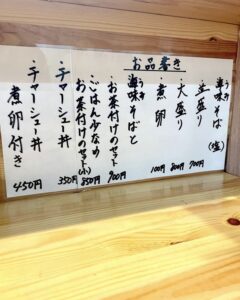 お品書き
海味そば(塩)
・並盛り 700円
・大盛り 800円
・煮卵 100円
海味そばと
お茶付けのセット 900円
・ごはん少なめ
お茶付けのセット(小) 850円
・チャーシュー丼 350円
・チャーシュー丼
煮卵付き 450円